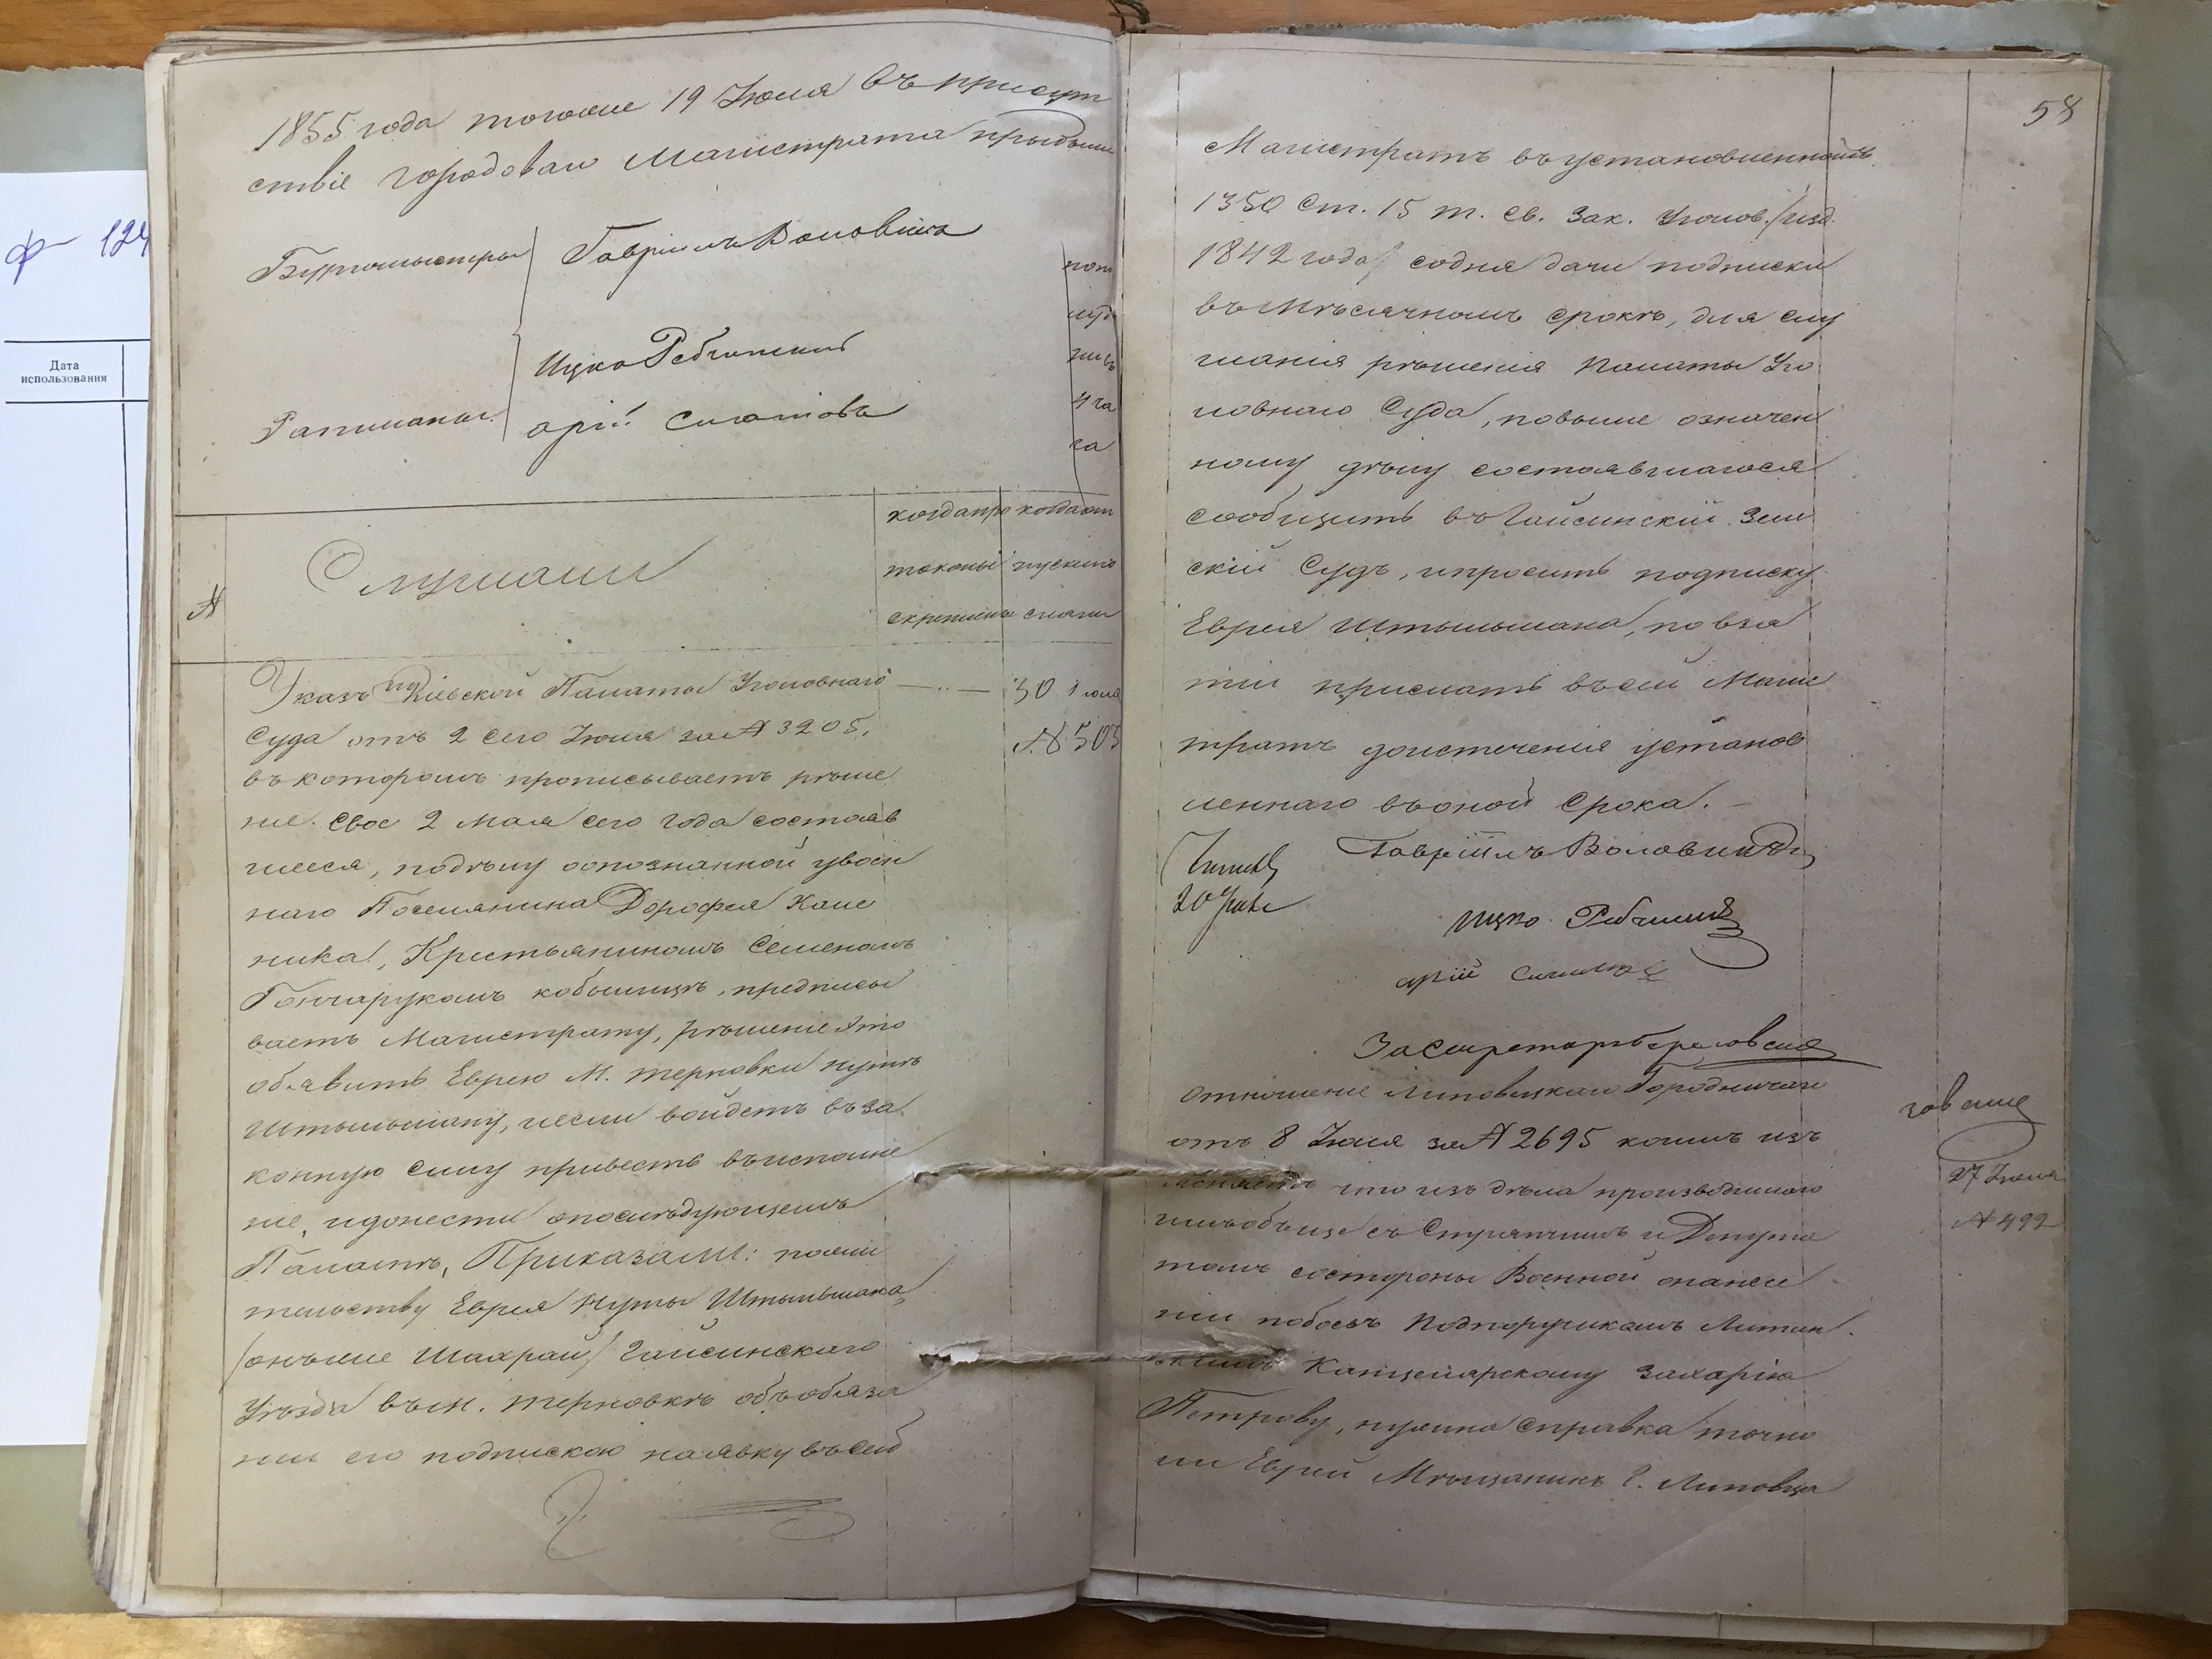 1855 года тогоже 19 Июля въ присут
ствіе городоваго Магистрата прыбыли
Бургомыстры
Гавріилъ
Ицко
Ратманы
Арій
пол
4 ча
са
№
Слушали
когда про
токолы
скреплены
когда от
пускъ
Указъ Кіевской Палаты Уголовнаго
Суда отъ 2 сего Июля за № 3205,
въ которомъ прописываетъ реше
ніе свое 2 Мая сего года состояв
шееся, по делу о опознанной у воен
наго Поселянина Дорофея Колес
ника, Крестьяниномъ Семеномъ
Гончарукомъ кобылице, предписы
ваетъ Магистрату, решеніе это
объявить Еврею М. Терновки Нуте
Штыльману, и если войдетъ въ за
конную силу привесть въ исполне
ніе, и донести о последующемъ
Палате, Приказали: по жи
тельству Еврея Нуты Штыльмана,
/онъ же Шахрай/ Гайсинскаго
Уезда въ м. Терновке объ обяза
ніи его подпискою на явку въ сей
30 Июля
№ 505
58
Магистратъ въ установленномъ
1350 Ст. 15 т. Св. Зак. Уголов. /изд.
1842 года/ со дня дачи подписки
въ месячномъ сроке, для слу
шанія решенія Палаты Уго
ловнаго Суда, по выше означен
ному делу состоявшагося
сообщить въ Гайсинскій Зем
скій Судъ, и просить подписку
Еврея Штыльмана, по взя
тіи прислать въ сей Магис
тратъ до истеченія установ
леннаго въ оной срока. —
Гавріилъ
20 Июля
Ицко
Арій
За Секретаря
Отношеніе Липовецкаго Городничаго
отъ 8 Июля за № 2695 коимъ изъ
ясняетъ что изъ дела производимаго
имъ обще съ Стряпчимъ и Депута
томъ со стороны Военной о нанесе
ніи побоевъ Подпоручикомъ Литвин
Канцелярскому Захарію
Петрову, нужна справка точно
ли Еврей Мещанинъ г. Липовца
27 Июля
№ 492
ф 124
Дата
использования